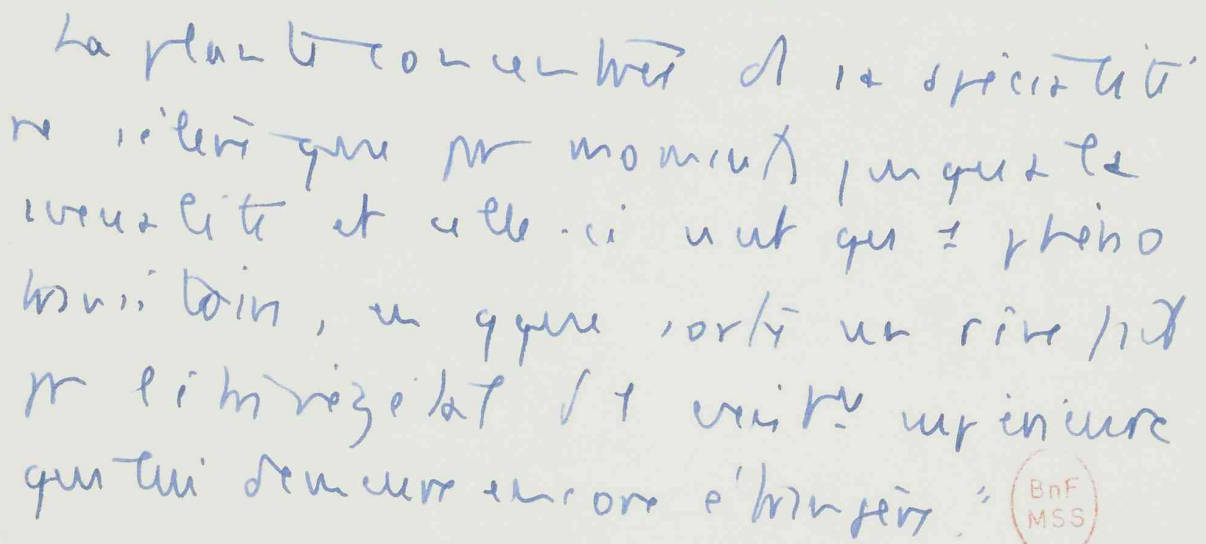 La plante concentrée ds sa spécialité
ne s'élève que pr moments jusqu'à la
sexualité et celle-ci n'est qu' 1 phéno
transitoire, en qque sorte un rêve
pr l'être végétat d' 1 supérieure
qui lui demeure encore étrangère."
BnF
MSS